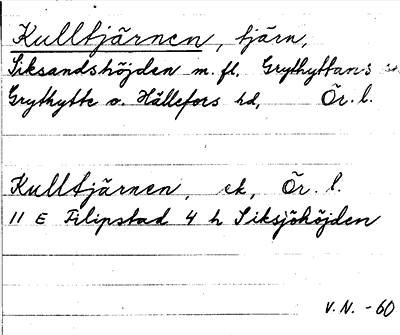 Kulltjärnen, tjärn,
Siksandshöjden m. fl. Grythyttans sn
Grythytte o. Hällefors hd, Ör. l.
Kulltjärnen, ek, Ör. l.
11 E Filipstad 4 h Siksjöhöjden
V. N. -60